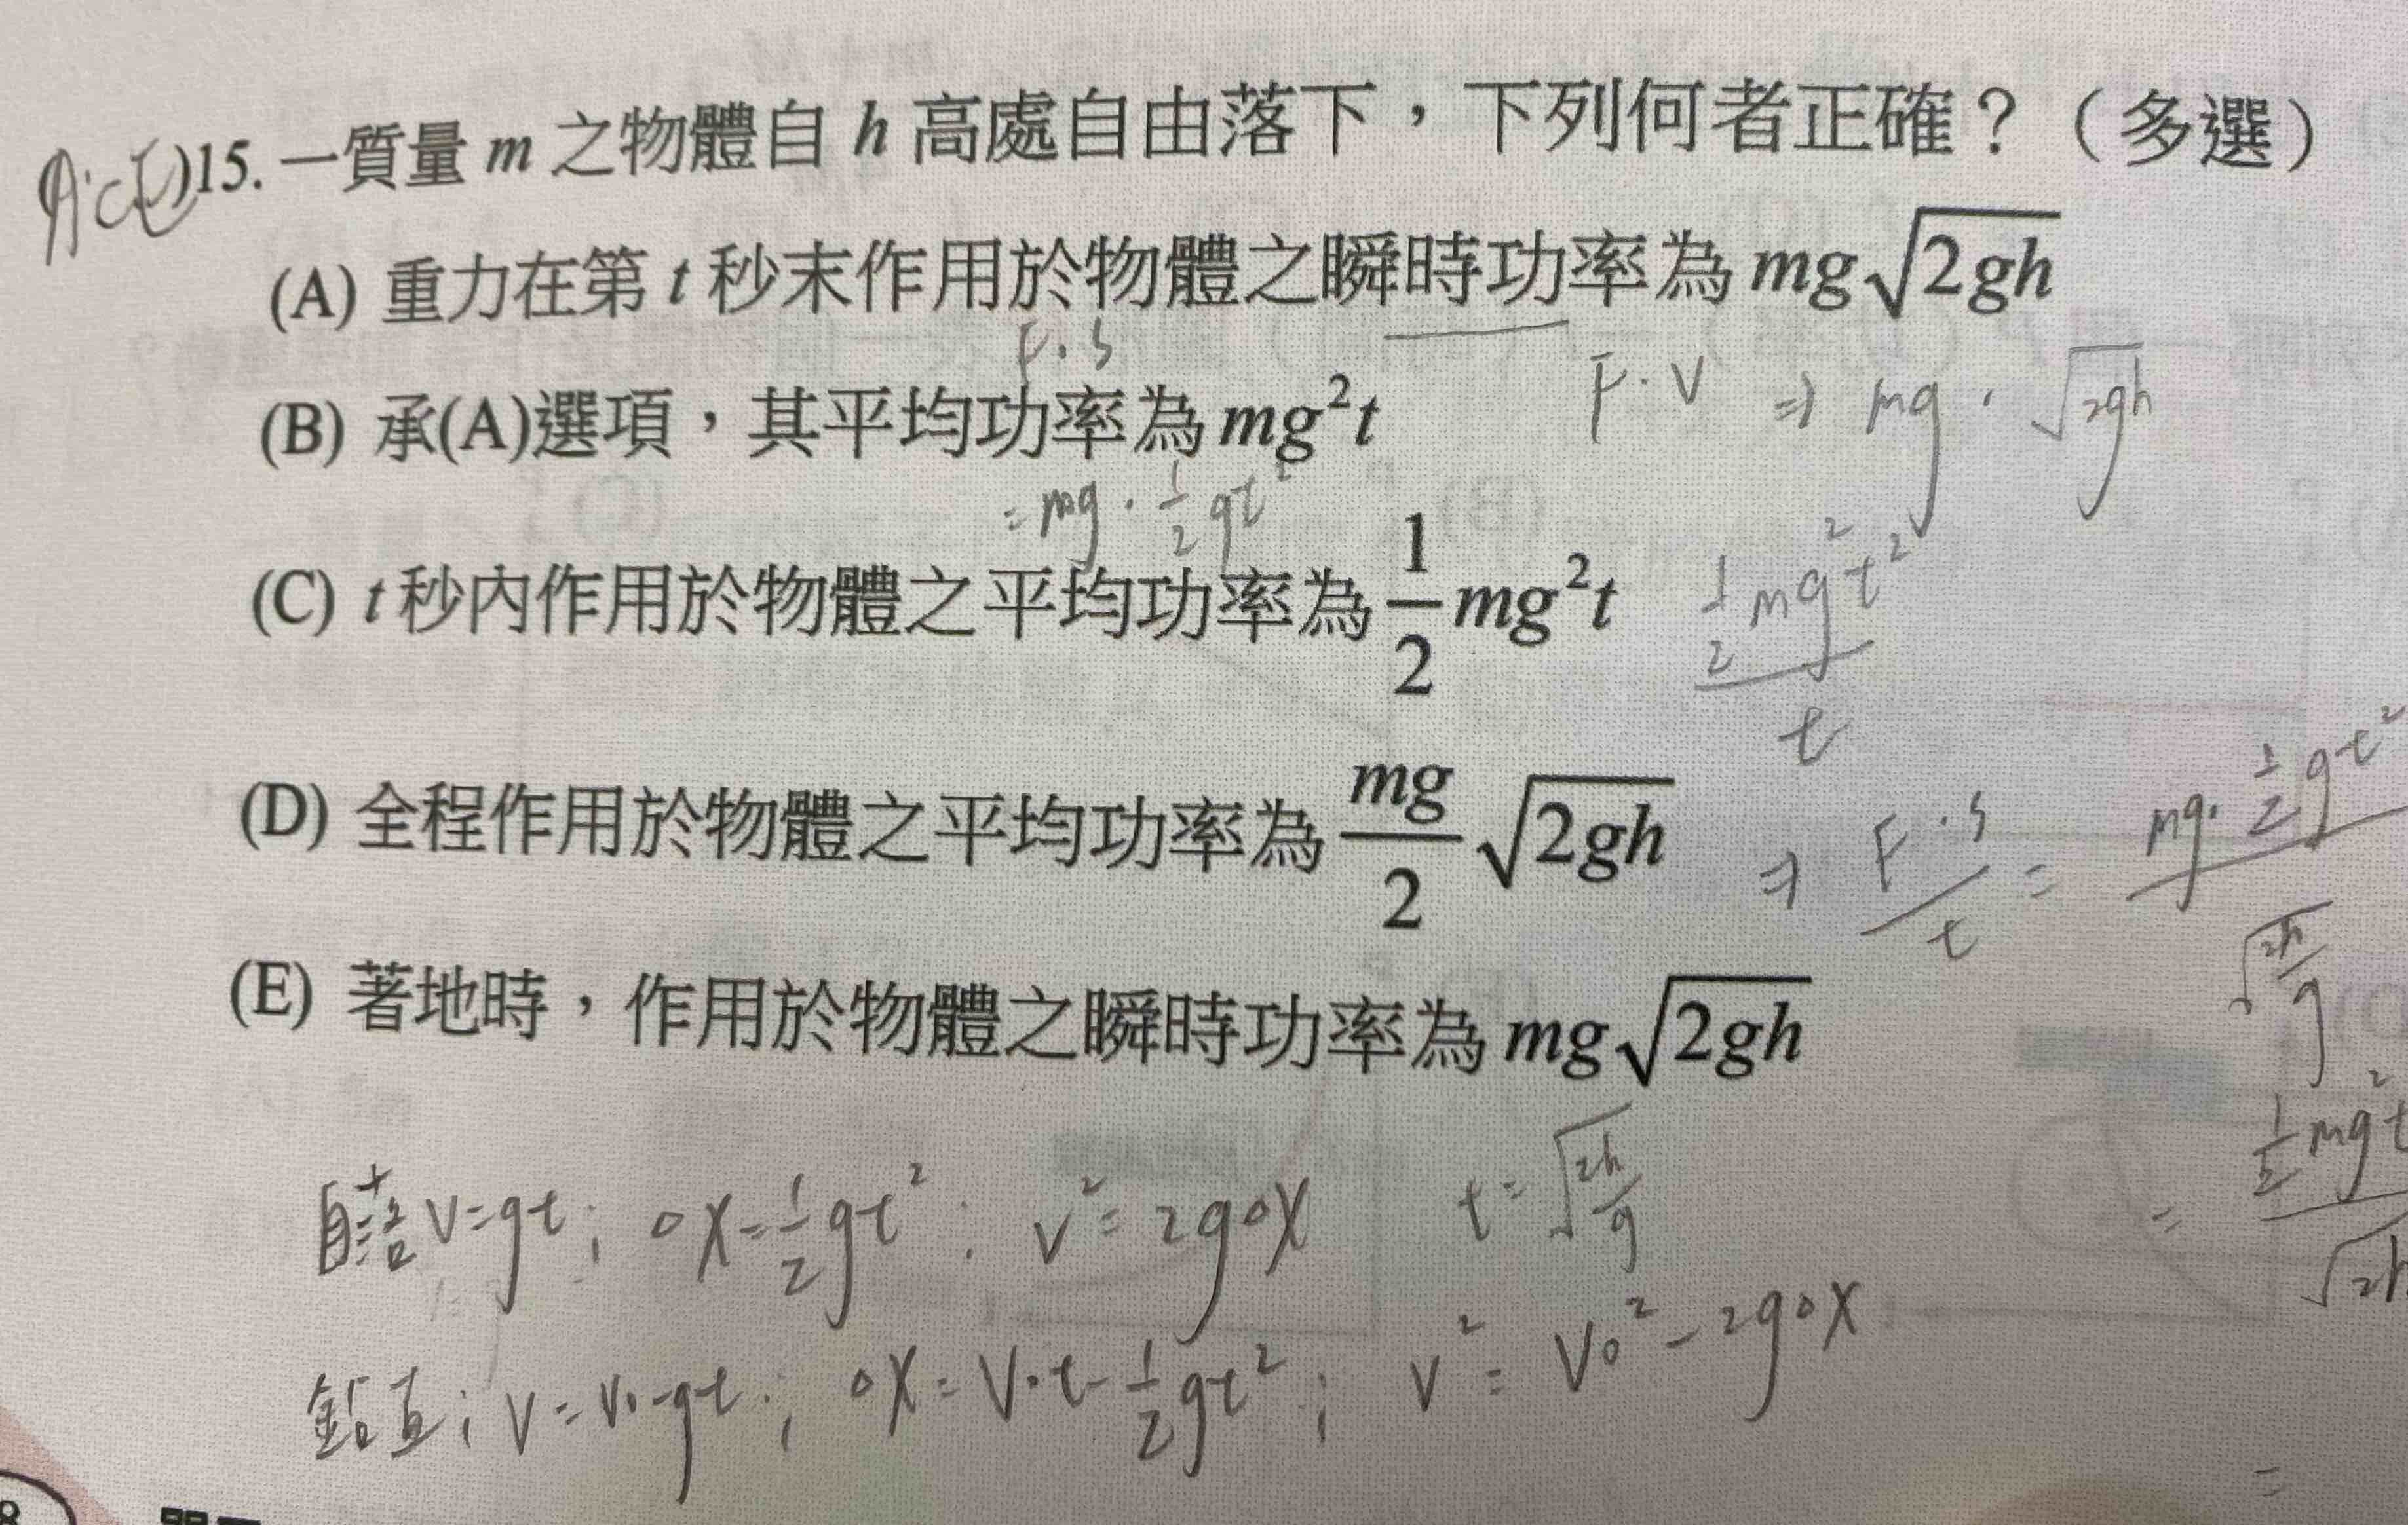 (A.C.E)15. 一質量 m 之物體自 h 高處自由落下，下列何者正確？（多選）
(A) 重力在第 t 秒末作用於物體之瞬時功率為 mg√2gh
F·s
F·V ⇒ mg·√2gh
(B) 承(A)選項，其平均功率為 mg²t
= mg·1/2gt²
(C) t 秒內作用於物體之平均功率為 1/2 mg²t
1/2mg²t²/t
(D) 全程作用於物體之平均功率為 mg/2 √2gh
⇒ F·s/t = mg·1/2gt²/√2h/g
(E) 著地時，作用於物體之瞬時功率為 mg√2gh
= 1/2mg²t
自落 V=gt; ΔX=1/2gt²; V²=2gΔX t=√2h/g
鉛直; V=V₀-gt; ΔX=V₀t-1/2gt²; V²=V₀²-2gΔX
=
8